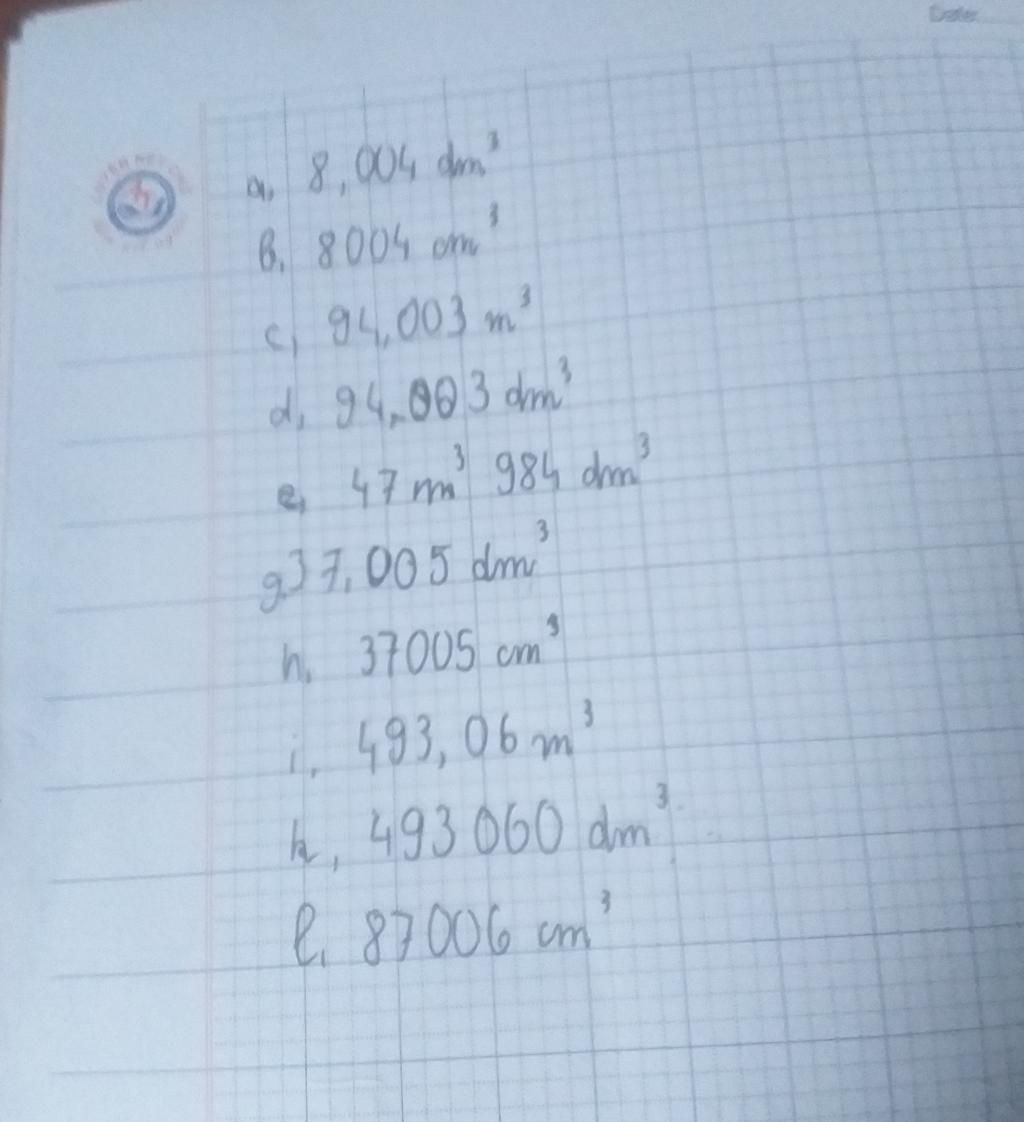 Date:
a, 8,004 dm³
b, 8004 cm³
c, 94,003 m³
d, 94.003 dm³
e, 47 m³ 984 dm³
g 37,005 dm³
h, 37005 cm³
i, 493,06 m³
k, 493 060 dm³
l, 87006 cm³